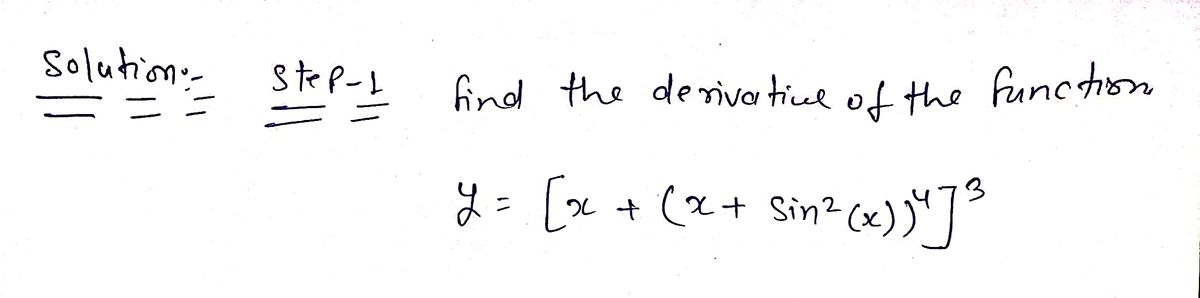 Solution:- Step-1 find the derivative of the function
y = [x + (x + sin²(x))⁴]³